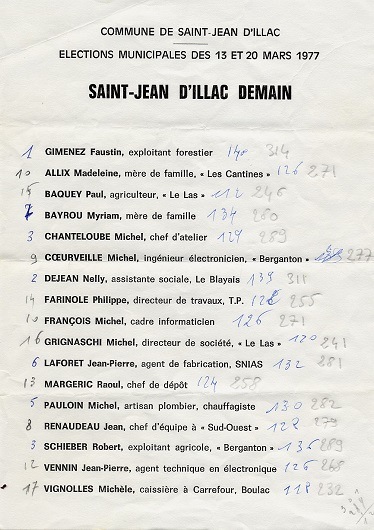 COMMUNE DE SAINT-JEAN D'ILLAC
ELECTIONS MUNICIPALES DES 13 ET 20 MARS 1977
SAINT-JEAN D'ILLAC DEMAIN
1 GIMENEZ Faustin, exploitant forestier 148 314
10 ALLIX Madeleine, mère de famille, « Les Cantines » 126 271
15 BAQUEY Paul, agriculteur, « Le Las » 112 246
7 BAYROU Myriam, mère de famille 134 260
3 CHANTELOUBE Michel, chef d'atelier 129 289
9 CŒURVEILLE Michel, ingénieur électronicien, « Berganton » 277
2 DEJEAN Nelly, assistante sociale, Le Blayais 139 311
14 FARINOLE Philippe, directeur de travaux, T.P. 255
10 FRANÇOIS Michel, cadre informaticien 126 271
16 GRIGNASCHI Michel, directeur de société, « Le Las » 120 241
6 LAFORET Jean-Pierre, agent de fabrication, SNIAS 132 281
13 MARGERIC Raoul, chef de dépôt 124 258
5 PAULOIN Michel, artisan plombier, chauffagiste 130 282
8 RENAUDEAU Jean, chef d'équipe à « Sud-Ouest » 128 279
3 SCHIEBER Robert, exploitant agricole, « Berganton » 289
12 VENNIN Jean-Pierre, agent technique en électronique 126 268
17 VIGNOLLES Michèle, caissière à Carrefour, Boulac 118 232